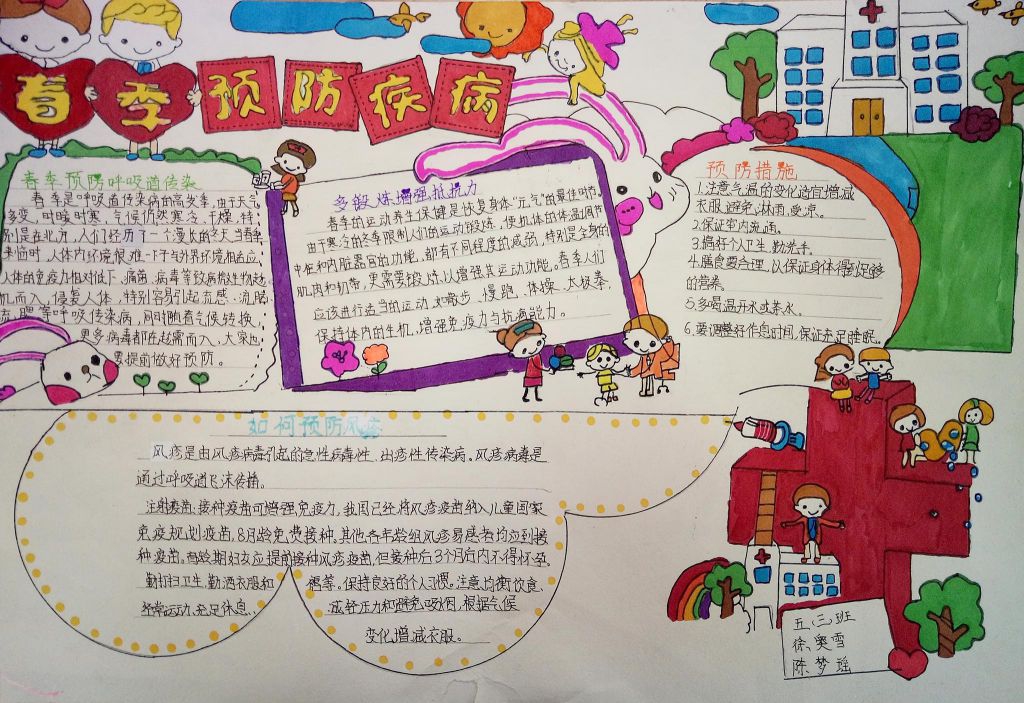 春季预防疾病
春季预防呼吸道传染
春季是呼吸道传染病的高发季,由于天气
多变,时暖时寒,气候仍然寒冷、干燥,特
别是在北方,人们经历了一个漫长的冬天当春季
来临时,人体内环境很难一下子与外界环境相适应,
人体的免疫力相对低下、病菌、病毒等致病微生物趁
机而入,侵袭人体,特别容易引起流感、流脑
流腮等呼吸传染病,同时随着气候转换,
更多病毒都在趁需而入,大家也
要提前做好预防。
多锻炼增强抵抗力
春季的运动养生保健是恢复身体“元气”的最佳时节。
由于寒冷的冬季限制人们的运动锻炼,使机体的体温调节
中枢和内脏器官的功能,都有不同程度的减弱,特别是全身的
肌肉和韧带,更需要锻炼以增强其运动功能。春季人们
应该进行适当的运动,如散步、慢跑、体操、太极拳,
保持体内的生机,增强免疫力与抗病能力。
预防措施
1.注意气温的变化适宜增减
衣服,避免淋雨、受凉。
2.保证室内流通。
3.搞好个人卫生,勤洗手。
4.膳食要合理,以保证身体得到足够
的营养。
5.多喝温开水或茶水。
6.要调整好作息时间,保证充足睡眠。
如何预防风疹
风疹是由风疹病毒引起的急性病毒性、出疹性传染病。风疹病毒是
通过呼吸道飞沫传播。
注射疫苗:接种疫苗可增强免疫力,我国已经将风疹疫苗纳入儿童国家
免疫规划疫苗,8月龄免费接种。其他各年龄组风疹易感者均应到接
种疫苗。育龄期妇女应提前接种风疹疫苗,但接种后3个月内不得怀孕。
勤打扫卫生,勤洒衣服和
褥等。保持良好的个人习惯。注意均衡饮食、
经常运动、充足休息、
减轻压力和避免吸烟,根据气候
变化增减衣服。
五、三班
徐、奥雪
陈梦瑶